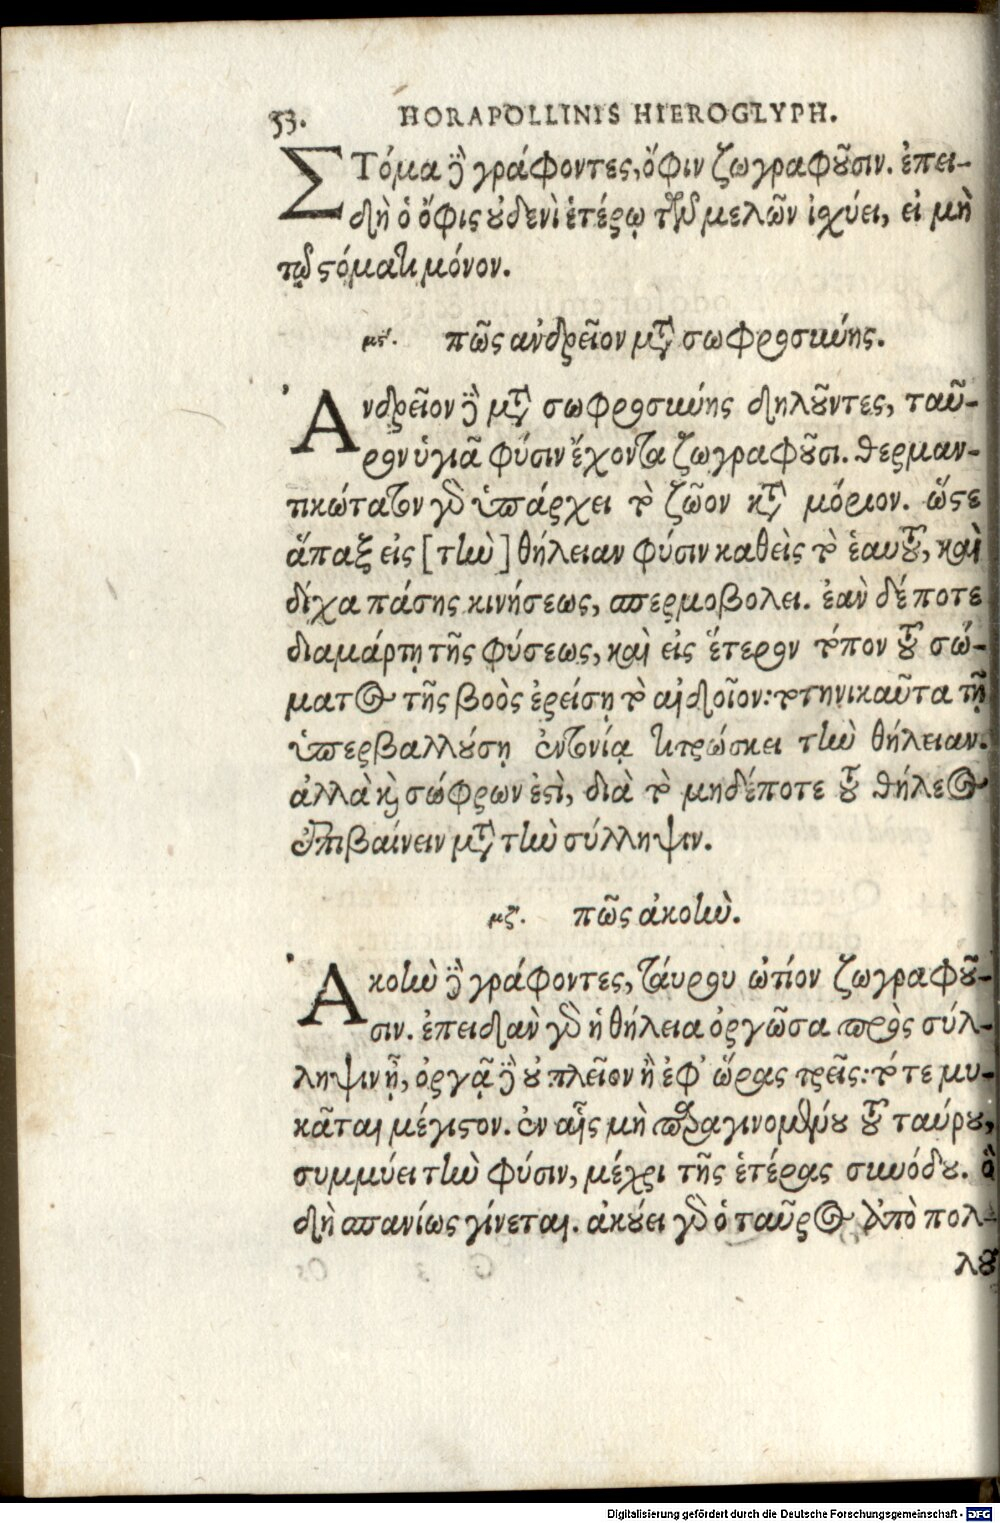 53. HORAPOLLINIS HIEROGLYPH.
ΣΤόμα δὲ γράφοντες, ὄφιν ζωγραφοῦσιν. ἐπει-
δὴ ὁ ὄφις οὐδενὶ ἑτέρῳ τῶν μελῶν ἰσχύει, εἰ μὴ
τῷ στόματι μόνον.
μϛʹ. πῶς ἀνδρεῖον μετὰ σωφροσύνης.
Ἀνδρεῖον δὲ μετὰ σωφροσύνης δηλοῦντες, ταῦ-
ρον ὑγιᾶ φύσιν ἔχοντα ζωγραφοῦσι. θερμαν-
τικώτατον γὰρ ὑπάρχει τὸ ζῶον κατὰ μόριον. ὥστε
ἅπαξ εἰς [τὴν] θήλειαν φύσιν καθεὶς τὸ ἑαυτοῦ, καὶ
δίχα πάσης κινήσεως, σπερμοβολει. ἐὰν δέ ποτε
διαμάρτῃ τῆς φύσεως, καὶ εἰς ἕτερον τόπον τοῦ σώ-
ματος τῆς βοὸς ἐρείσῃ τὸ αἰδοῖον: τοτηνικαῦτα τῇ
ὑπερβαλλούσῃ ἐντονίᾳ τιτρώσκει τὴν θήλειαν.
ἀλλὰ καὶ σώφρων ἐστὶ, διὰ τὸ μηδέποτε τοῦ θήλεος
ἐπιβαίνειν μετὰ τὴν σύλληψιν.
μζʹ. πῶς ἀκοὴν.
Ἀκοὴν δὲ γράφοντες, ταύρου ὠτίον ζωγραφοῦ-
σιν. ἐπειδὰν γὰρ ἡ θήλεια ὀργῶσα πρὸς σύλ-
ληψιν ᾖ, ὀργᾷ δὲ οὐ πλεῖον ἢ ἐφ' ὥρας τρεῖς: τότε μυ-
κᾶται μέγιστον. ἐν αἷς μὴ παραγινομένου τοῦ ταύρου,
συμμύει τὴν φύσιν, μέχρι τῆς ἑτέρας συνόδου. ὃ
δὴ σπανίως γίνεται. ἀκούει γὰρ ὁ ταῦρος ἀπὸ πολ-
λοῦ
Digitalisierung gefördert durch die Deutsche Forschungsgemeinschaft - DFG